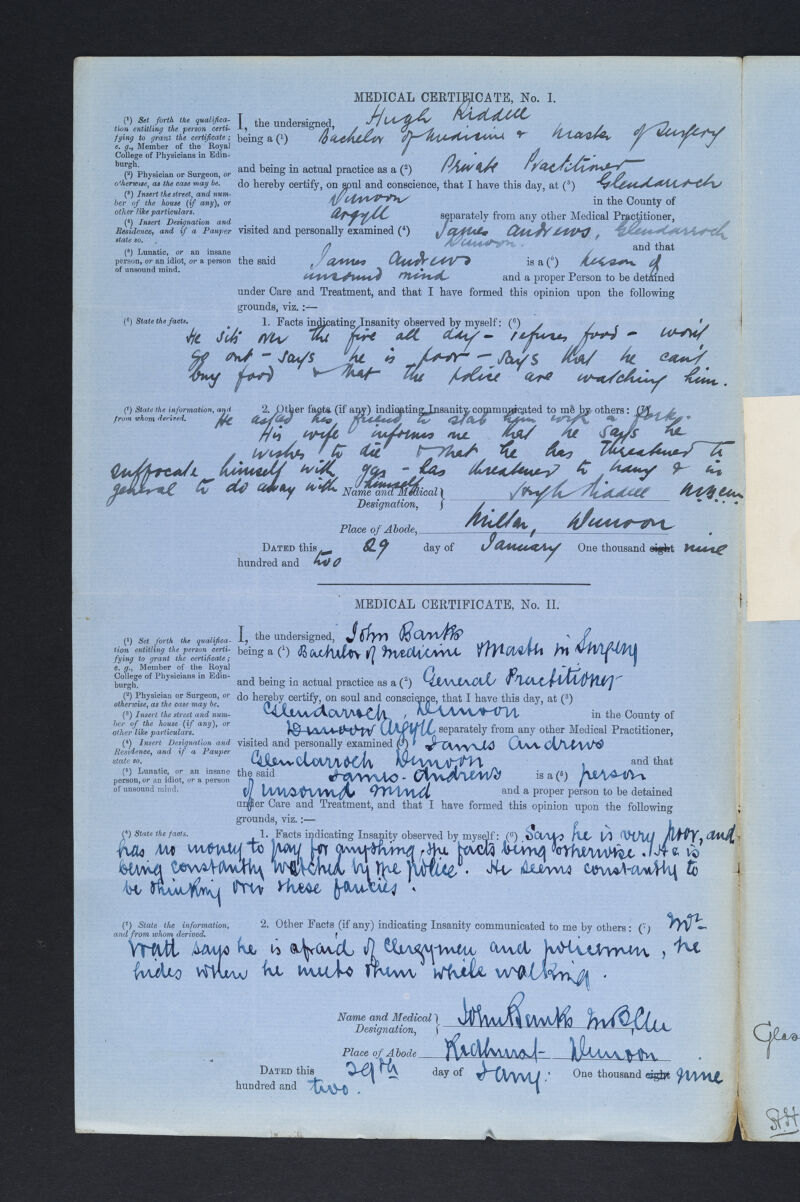 MEDICAL CERTIFICATE, No. I.
(1) Set forth the qualifica-
tion entitling the person certi-
fying to grant the certificate;
e. g., Member of the Royal
College of Physicians in Edin-
burgh.
(2) Physician or Surgeon, or
otherwise, as the case may be.
(3) Insert the street, and num-
ber of the house (if any), or
other like particulars.
(4) Insert Designation and
Residence, and if a Pauper
state so.
(5) Lunatic, or an insane
person, or an idiot, or a person
of unsound mind.
I, the undersigned, Hugh Riddell
being a (1) Bachelor of Medicine & Master of Surgery
and being in actual practice as a (2) Private Practitioner
do hereby certify, on soul and conscience, that I have this day, at (3) Glendarroch
Dunoon in the County of
Argyll separately from any other Medical Practitioner,
visited and personally examined (4) James Andrews, Glendarroch
Dunoon. and that
the said James Andrews is a (5) person of
unsound mind and a proper Person to be detained
under Care and Treatment, and that I have formed this opinion upon the following
grounds, viz. :—
(6) State the facts.
1. Facts indicating Insanity observed by myself: (6)
He sits over the fire all day – refuses food – won't
go out – says he is poor – says that he can't
buy food & that the police are watching him.
(7) State the information, and
from whom derived.
2. Other facts (if any) indicating Insanity communicated to me by others: (7)
He asked his friend to stab him with a fork.
His wife informs me that he says he
wishes to die & that he has threatened to
suffocate himself with gas – has threatened to hang & in
general to do away with himself
Name and Medical Designation, Hugh Riddell M.B.C.M.
Place of Abode, Dunoon
DATED this 29 day of January One thousand eight nine
hundred and two
MEDICAL CERTIFICATE, No. II.
(1) Set forth the qualifica-
tion entitling the person certi-
fying to grant the certificate;
e. g., Member of the Royal
College of Physicians in Edin-
burgh.
(2) Physician or Surgeon, or
otherwise, as the case may be.
(3) Insert the street and num-
ber of the house (if any), or
other like particulars.
(4) Insert Designation and
Residence, and if a Pauper
state so.
(5) Lunatic, or an insane
person, or an idiot, or a person
of unsound mind.
I, the undersigned, John Banks
being a (1) Bachelor of Medicine & Master in Surgery
and being in actual practice as a (2) General Practitioner
do hereby certify, on soul and conscience, that I have this day, at (3)
Glendarroch, Dunoon in the County of
Dunoon Argyll separately from any other Medical Practitioner,
visited and personally examined (4) James Andrews
Glendarroch Dunoon and that
the said James Andrews is a (5) person
of unsound mind and a proper person to be detained
under Care and Treatment, and that I have formed this opinion upon the following
grounds, viz. :—
(6) State the facts.
1. Facts indicating Insanity observed by myself: (6) Says he is very poor, and
has no money to pay for anything, the facts being otherwise. He is
being constantly watched by the police. He seems constantly to
be thinking over these fancies.
(7) State the information,
and from whom derived.
2. Other Facts (if any) indicating Insanity communicated to me by others: (7) Mr
Watt says he is afraid of Clergymen and policemen, he
hides when he meets them while walking.
Name and Medical Designation, John Banks M.B., C.M.
Place of Abode Dunoon
DATED this 29th day of Jany: One thousand eight nine
hundred and two.
Glas